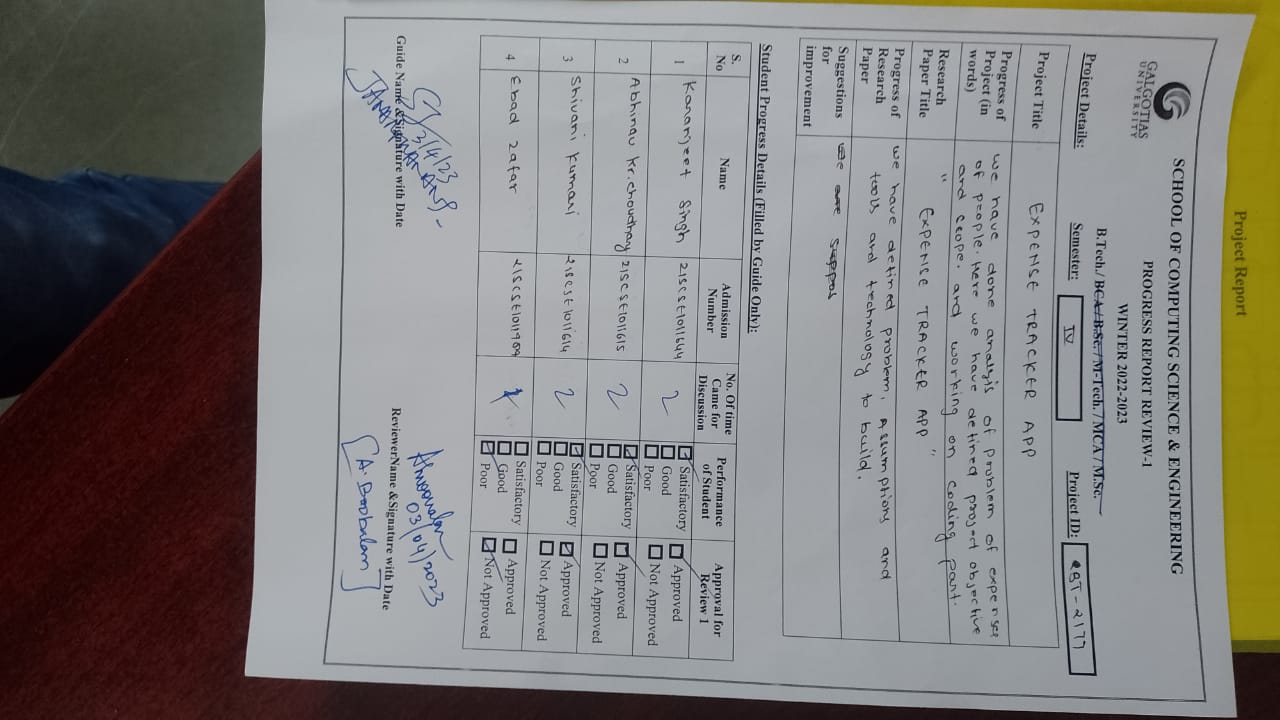 Project Report
GALGOTIAS
UNIVERSITY
SCHOOL OF COMPUTING SCIENCE & ENGINEERING
PROGRESS REPORT REVIEW-1
WINTER 2022-2023
B.Tech./ BCA/ B.Sc. / M-Tech. / MCA / M.Sc.
Project Details: Semester: IV Project ID: - 2177
Project Title EXPENSE TRACKER APP
Progress of Project (in words) we have done analysis of problem of expense
of people. Here we have defined project objective
and scope. and working on coding part.
Research Paper Title " EXPENSE TRACKER APP "
Progress of Research Paper we have defined problem, assumptions and
tools and technology to build.
Suggestions for improvement
Student Progress Details (Filled by Guide Only):
S. No Name Admission Number No. Of time Came for Discussion Performance of Student Approval for Review 1
1 Karamjeet Singh 21SCSE1011644 2 Satisfactory Approved
Good Not Approved
Poor
2 Abhinav Kr. Choudhary 21SCSE1011615 2 Satisfactory Approved
Good Not Approved
Poor
3 Shivani Kumari 21SCSE1011614 2 Satisfactory Approved
Good Not Approved
Poor
4 Ebad Zafar 21SCSE1011909 Satisfactory Approved
Good Not Approved
Poor
3/4/23
Guide Name & Signature with Date
03/04/2023
ReviewerName &Signature with Date
[A. Boobalan]